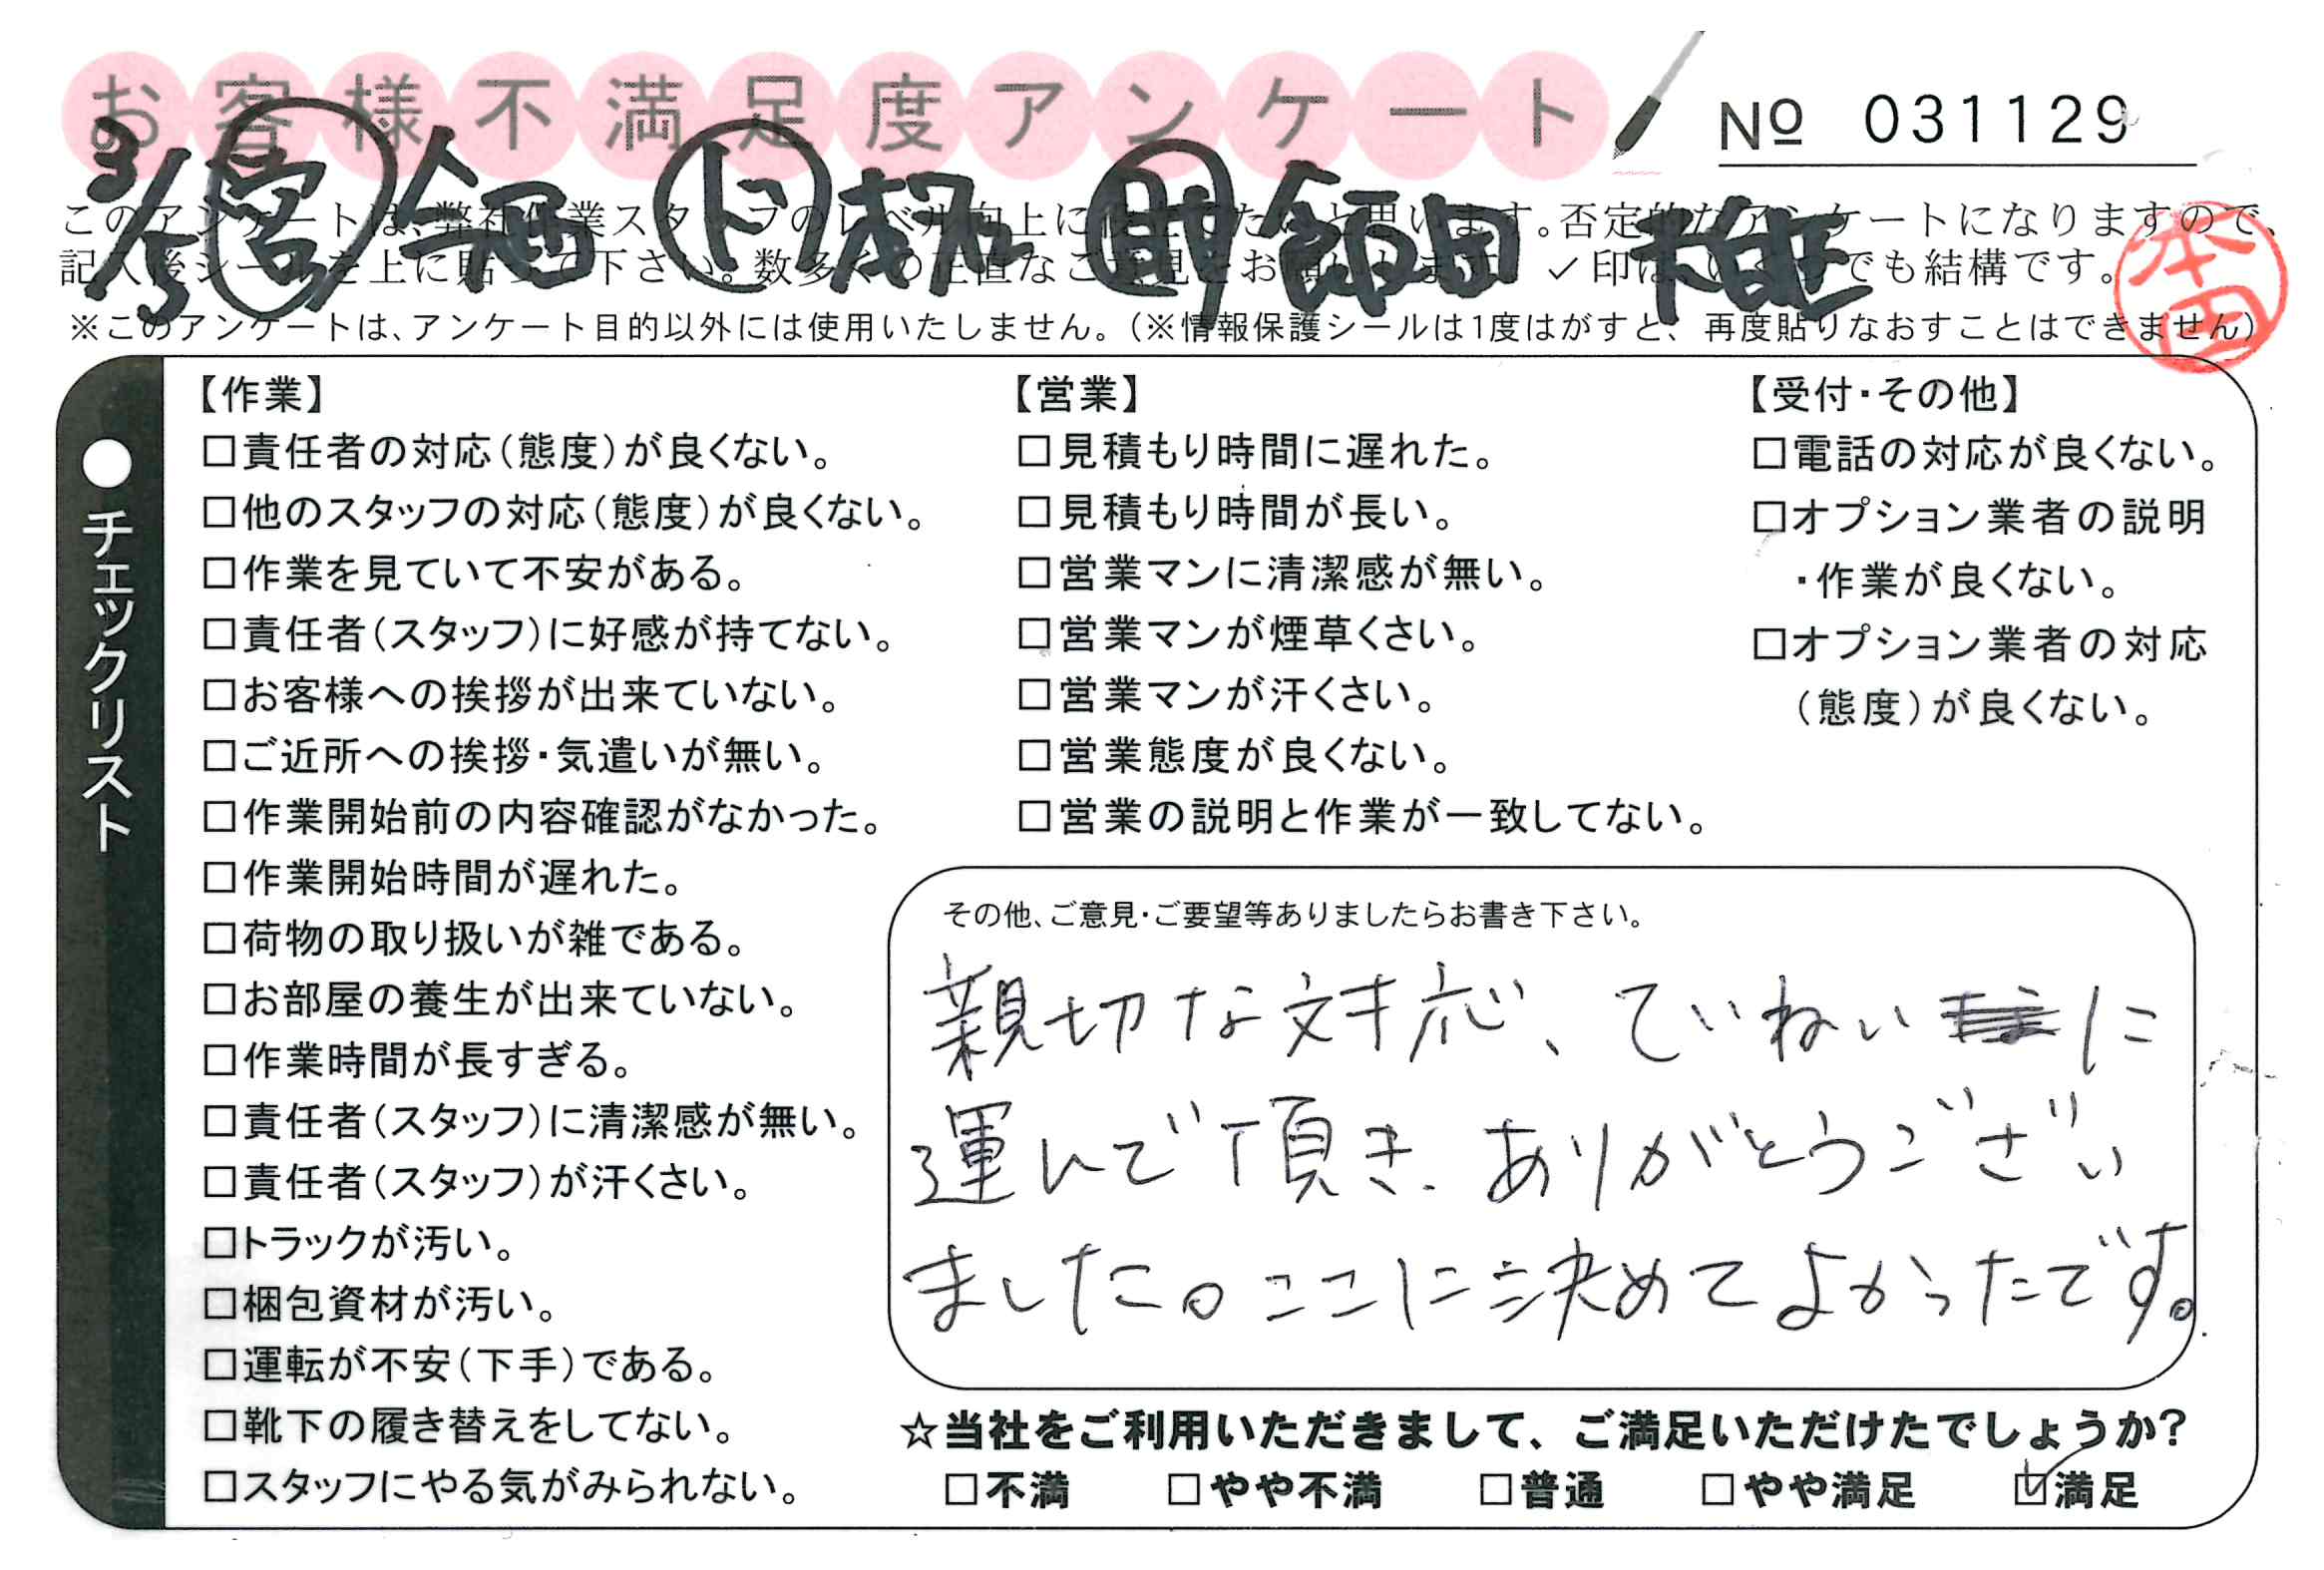 お客様不満足度アンケート
No 031129
3/15 営 今西 ド 本松 助 飯田
このアンケートは、弊社作業スタッフのレベル向上に
否定的なアンケートになりますので、
記入後シールを上に貼って下さい。数多くの正直なご意見をお願いします。✓印は、いくつでも結構です。
本田
※このアンケートは、アンケート目的以外には使用いたしません。(※情報保護シールは1度はがすと、再度貼りなおすことはできません)
●チェックリスト
【作業】
□責任者の対応(態度)が良くない。
□他のスタッフの対応(態度)が良くない。
□作業を見ていて不安がある。
□責任者(スタッフ)に好感が持てない。
□お客様への挨拶が出来ていない。
□ご近所への挨拶・気遣いが無い。
□作業開始前の内容確認がなかった。
□作業開始時間が遅れた。
□荷物の取り扱いが雑である。
□お部屋の養生が出来ていない。
□作業時間が長すぎる。
□責任者(スタッフ)に清潔感が無い。
□責任者(スタッフ)が汗くさい。
□トラックが汚い。
□梱包資材が汚い。
□運転が不安(下手)である。
□靴下の履き替えをしてない。
□スタッフにやる気がみられない。
【営業】
□見積もり時間に遅れた。
□見積もり時間が長い。
□営業マンに清潔感が無い。
□営業マンが煙草くさい。
□営業マンが汗くさい。
□営業態度が良くない。
□営業の説明と作業が一致してない。
【受付・その他】
□電話の対応が良くない。
□オプション業者の説明
・作業が良くない。
□オプション業者の対応
(態度)が良くない。
その他、ご意見・ご要望等ありましたらお書き下さい。
親切な対応、ていねいに
運んで頂き、ありがとうござい
ました。ここに決めてよかったです。
☆当社をご利用いただきまして、ご満足いただけたでしょうか?
□不満 □やや不満 □普通 □やや満足 ☑満足